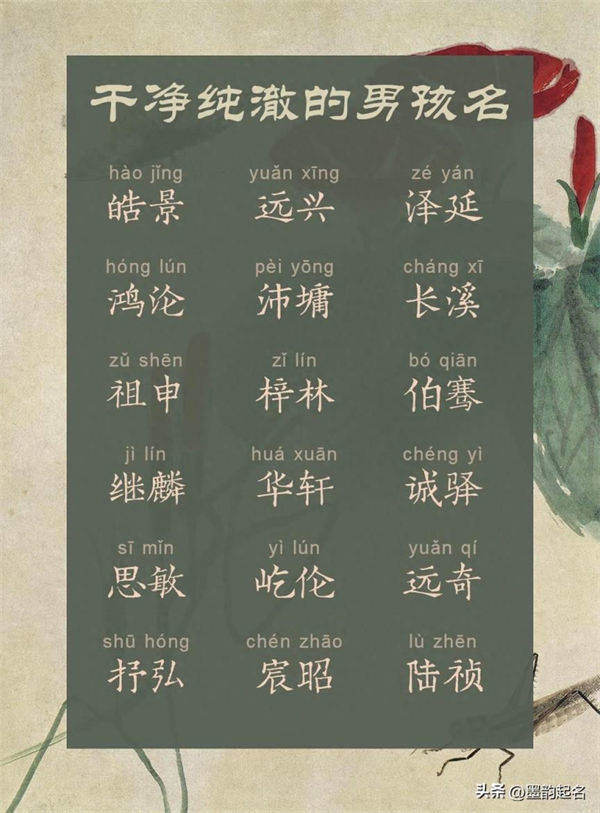 干净纯澈的男孩名
hào jǐng yuǎn xīng zé yán
皓景 远兴 泽延
hóng lún pèi yōng cháng xī
鸿沦 沛墉 长溪
zǔ shēn zǐ lín bó qiān
祖申 梓林 伯骞
jì lín huá xuān chéng yì
继麟 华轩 诚驿
sī mǐn yì lún yuǎn qí
思敏 屹伦 远奇
shū hóng chén zhāo lù zhēn
抒弘 宸昭 陆祯
头条 @墨韵起名